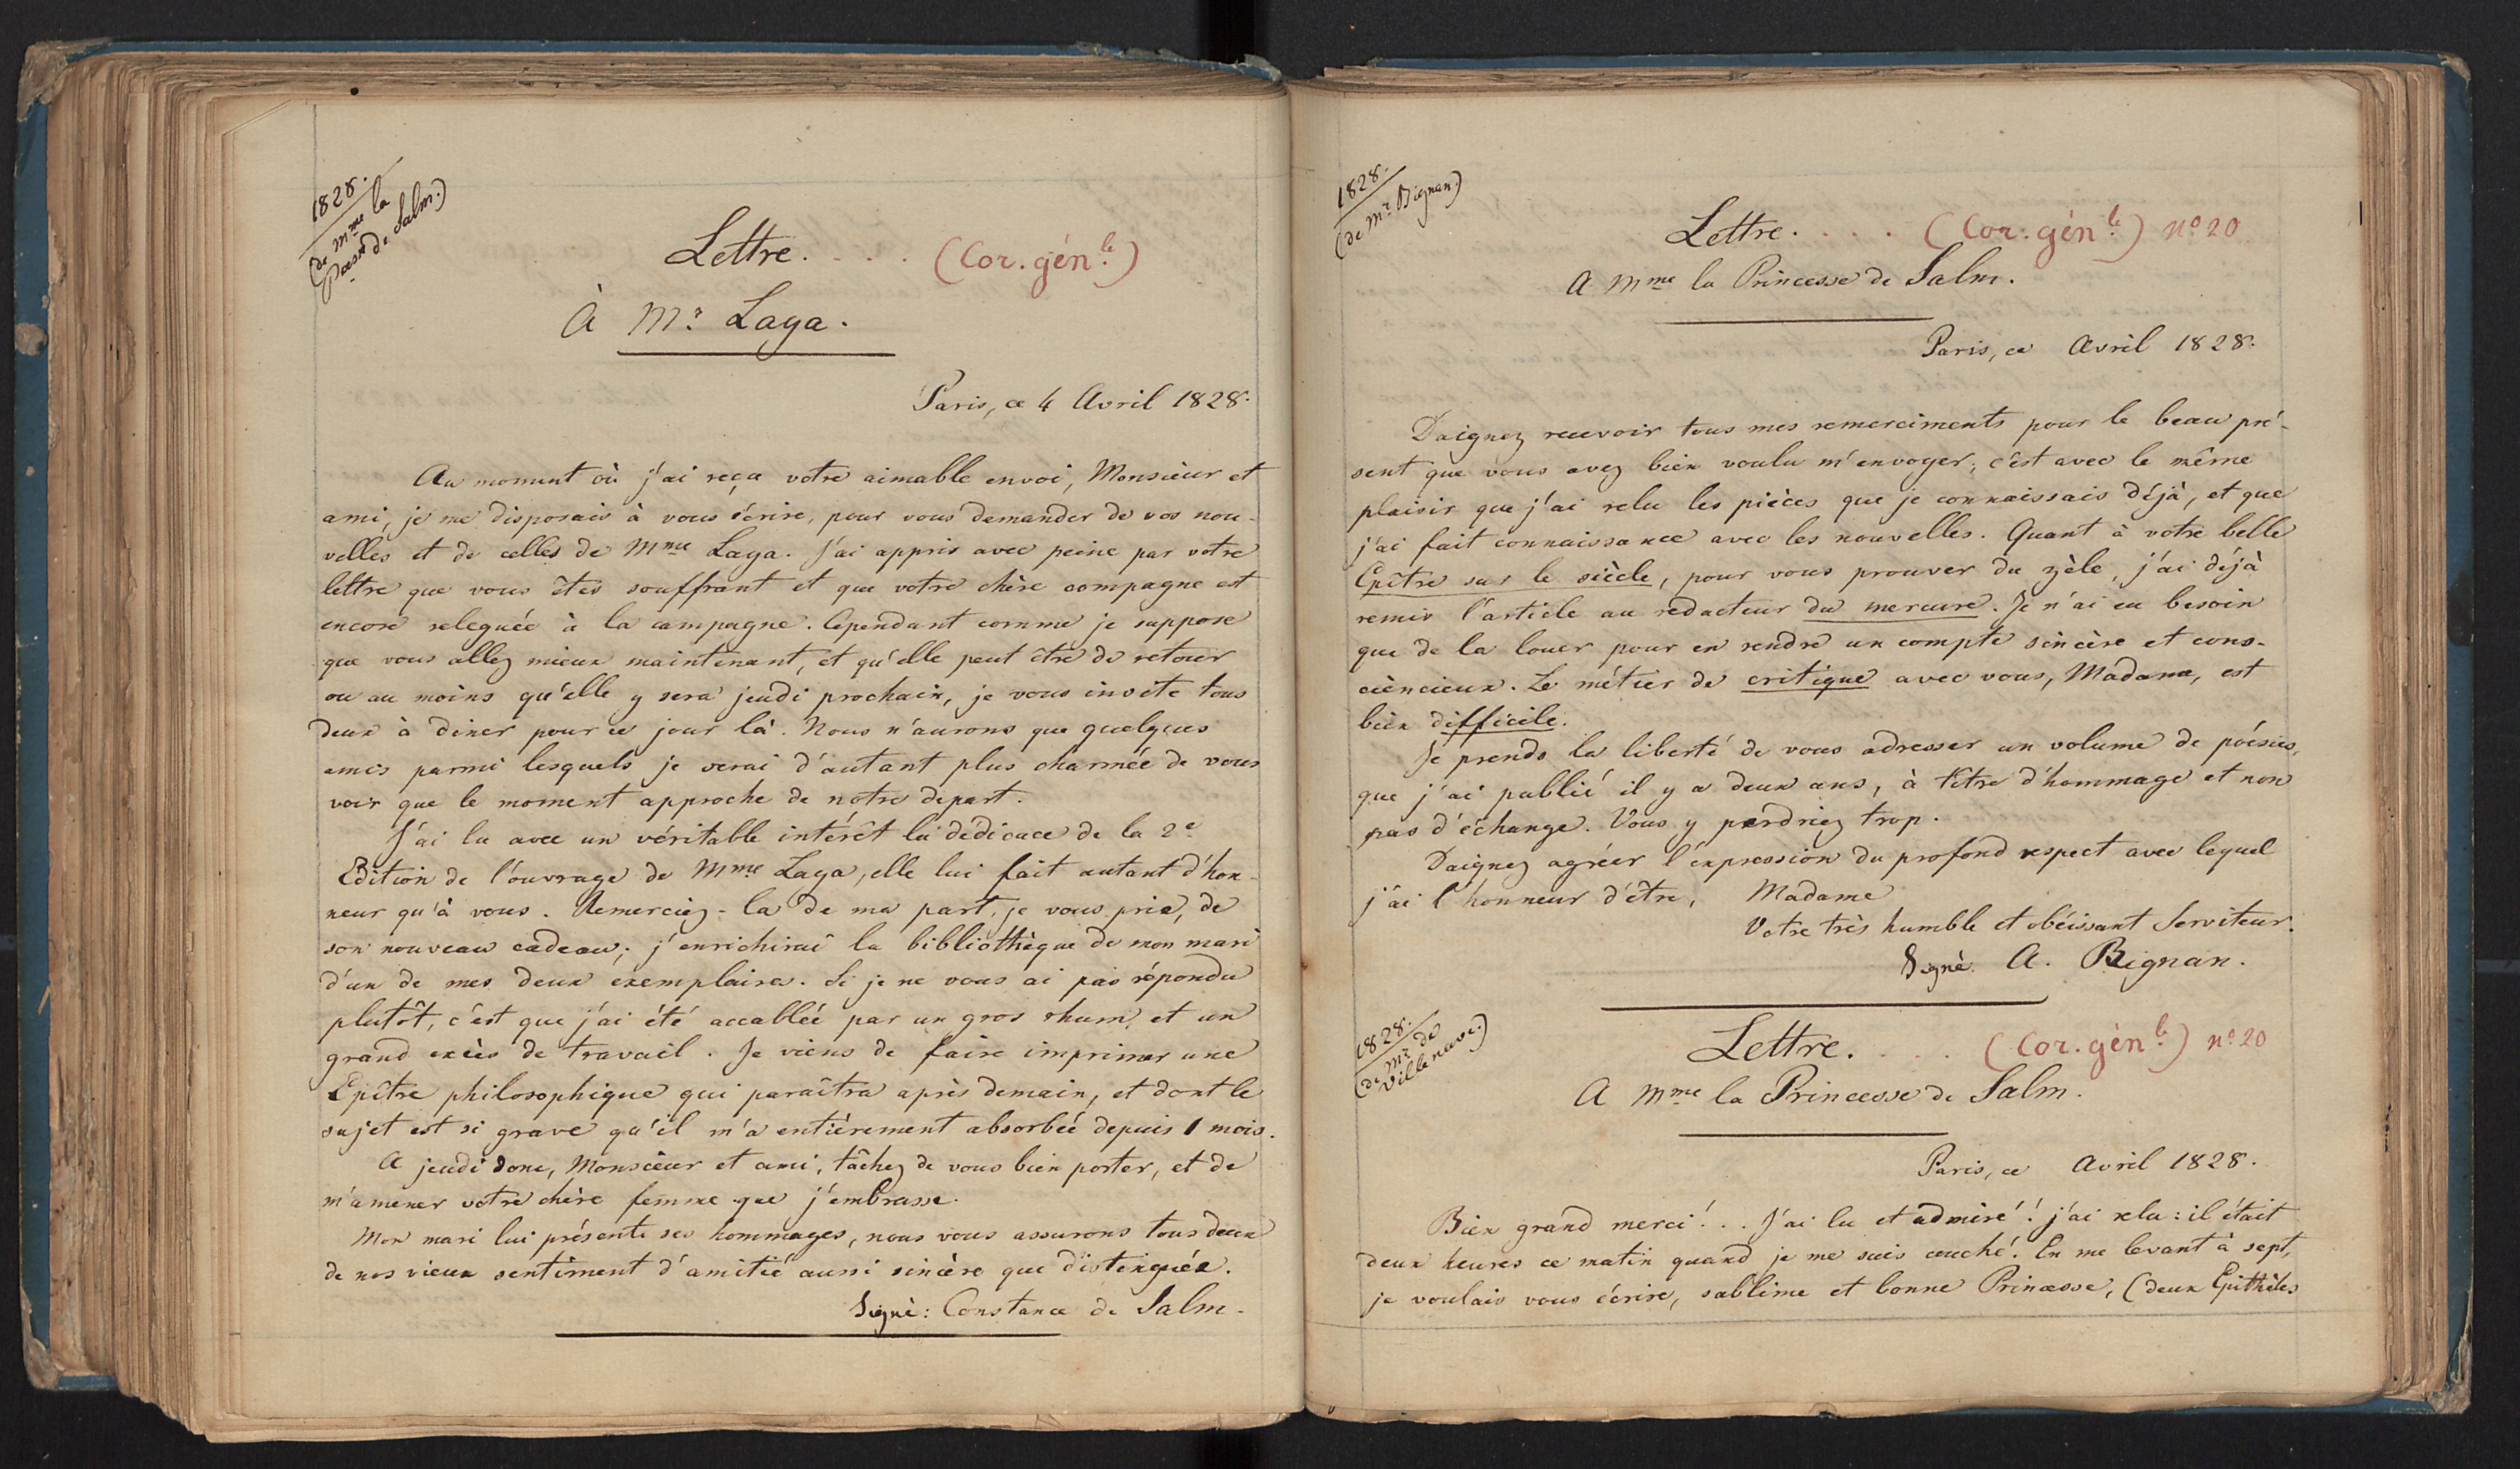 1828.
(de Mme la
Pcesse de Salm.)
Lettre. . . . (Cor. génle)
À Mr. Laya.
Paris, ce 4 Avril 1828.
Au moment où j'ai reçu votre aimable envoi, Monsieur et
ami, je me disposais à vous écrire, pour vous demander de vos nou-
velles et de celles de Mme Laya. J'ai appris avec peine par votre
lettre que vous êtes souffrant et que votre chère compagne est
encore releguée à la campagne. Cependant comme je suppose
que vous allez mieux maintenant, et qu'elle peut être de retour
ou au moins qu'elle y sera jeudi prochain, je vous invite tous
deux à diner pour ce jour là. Nous n'aurons que quelques
amis parmi lesquels je serai d'autant plus charmée de vous
voir que le moment approche de notre départ.
J'ai lu avec un véritable intérêt la dédicace de la 2e
Edition de l'ouvrage de Mme Laya, elle lui fait autant d'hon-
neur qu'à vous. Remerciez-la de ma part, je vous prie, de
son nouveau cadeau; j'enrichirai la bibliothèque de mon mari
d'un de mes deux exemplaires. Si je ne vous ai pas répondu
plutôt, c'est que j'ai été accablée par un gros rhum, et un
grand excès de travail. Je viens de faire imprimer une
Epître philosophique qui paraîtra après demain, et dont le
sujet est si grave qu'il m'a entièrement absorbée depuis 1 mois.
A jeudi donc, Monsieur et ami, tâchez de vous bien porter, et de
m'amener votre chère femme que j'embrasse.
Mon mari lui présente ses hommages, nous vous assurons tous deux
de nos vieux sentiment d'amitié aussi sincère que distinguée.
Signé: Constance de Salm.
1828.
(de Mr. Bignan.)
Lettre. . . . (Cor. génle) No 20
A Mme la Princesse de Salm.
Paris, ce Avril 1828.
Daignez recevoir tous mes remerciments pour le beau pré-
sent que vous avez bien voulu m'envoyer; c'est avec le même
plaisir que j'ai relu les pièces que je connaissais déjà, et que
j'ai fait connaissance avec les nouvelles. Quant à votre belle
Epître sur le siècle, pour vous prouver du zèle, j'ai déjà
remis l'article au rédacteur du mercure. Je n'ai eu besoin
que de la louer pour en rendre un compte sincère et cons-
ciencieux. Le métier de critique avec vous, Madame, est
bien difficile.
Je prends la liberté de vous adresser un volume de poésies,
que j'ai publié il y a deux ans, à titre d'hommage et non
pas d'échange. Vous y perdriez trop.
Daignez agréer l'expression du profond respect avec lequel
j'ai l'honneur d'être, Madame
Votre très humble et obéissant Serviteur.
Signé. A. Bignan.
1828.
(de Mr. de
Villenave.)
Lettre. . . . (Cor. génle) no 20
A Mme la Princesse de Salm.
Paris, ce Avril 1828.
Bien grand merci!.. J'ai lu et admiré! j'ai relu: il était
deux heures ce matin quand je me suis couché. En me levant à sept,
je voulais vous écrire, sublime et bonne Princesse, (deux Epithètes